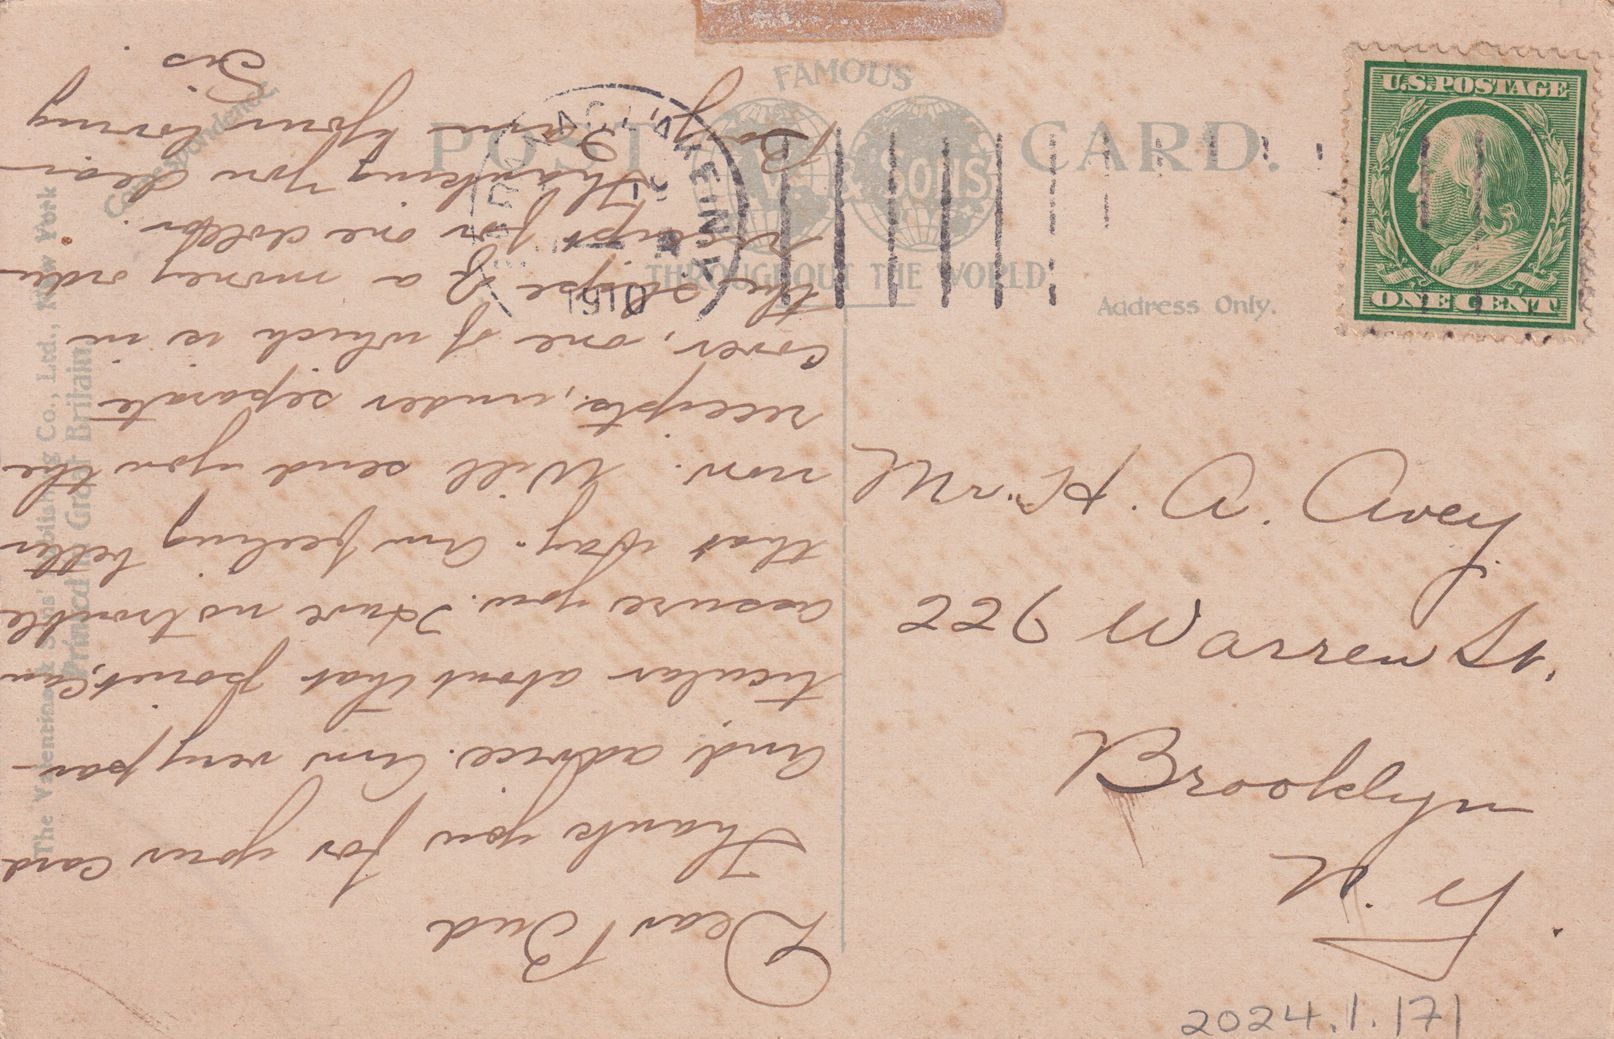 POST CARD.
FAMOUS
V & SONS
THROUGHOUT THE WORLD
Address Only.
Correspondence
The Valentine & Sons' Publishing Co., Ltd., New York
Printed in Great Britain.
U.S. POSTAGE
ONE CENT
1910
Mr. H. A. Avey
226 Warren St.
Brooklyn
N. Y.
2024.1.171
Dear Bud
Thank you for your card
and advice. Am very par-
ticular about that point, can
assure you. Have no trouble
that way. Am feeling better
now. Will send you the
receipts, under separate
cover, one of which is in
the shape of a money order
receipt for one dollar.
Thanking you dear
Bo
I am your loving
Sis